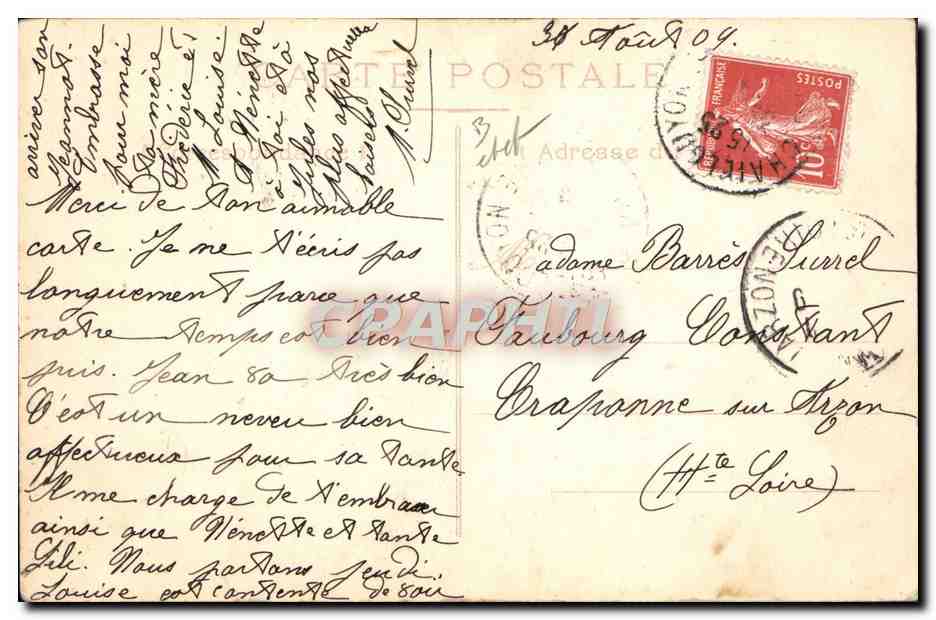 30 Août 09.
CARTE POSTALE
Correspondance
Adresse du
Merci de ton aimable
carte. Je ne t'écris pas
longuement parce que
notre temps est bien
pris. Jean va très bien
C'est un neveu bien
affectueux pour sa tante.
Il me charge de t'embrasser
ainsi que Nénette et tante
Lili. Nous partons jeudi.
Louise est contente de voir
arriver son
Jeannot.
Embrasse
pour moi
ta mère
Frédéric et
M Louise.
A Nénette
à toi et à
Jules nos
plus affectueux
baisers
M. Surrel
Madame Barrès Surrel
Faubourg Constant
Craponne sur Arzon
(Hte Loire)
RÉPUBLIQUE FRANÇAISE
POSTES
10c
15 25
CRAPHTI